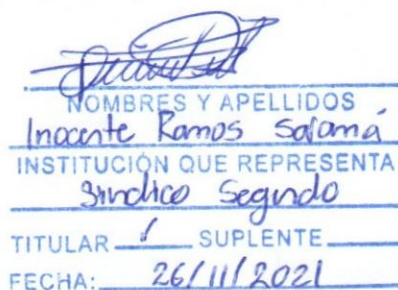 NOMBRES Y APELLIDOS
Inocente Ramos Salamá
INSTITUCIÓN QUE REPRESENTA
Sindico Segundo
TITULAR / SUPLENTE
FECHA: 26/11/2021